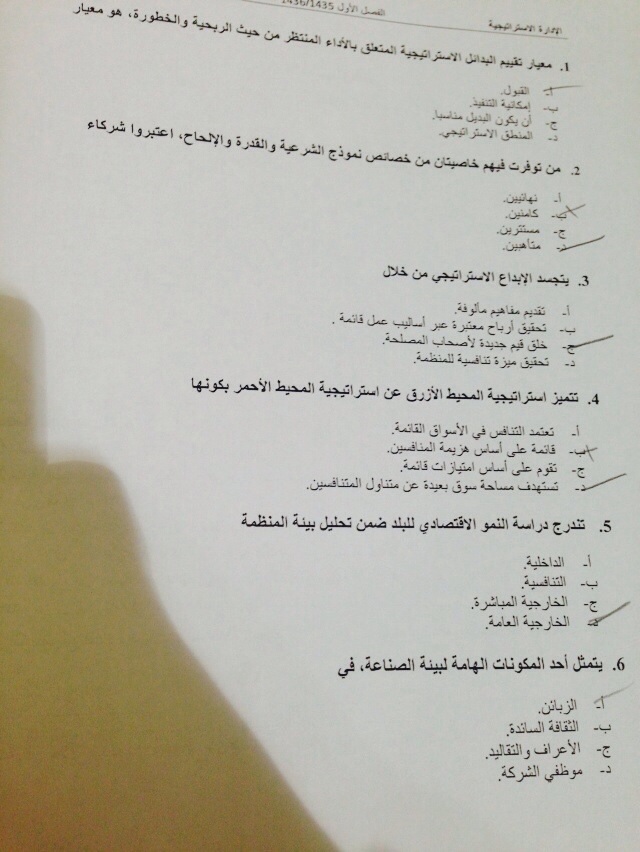 الإدارة الاستراتيجية
الفصل الأول 1436/1435
1. معيار تقييم البدائل الاستراتيجية المتعلق بالأداء المنتظر من حيث الربحية والخطورة، هو معيار
أ- القبول.
ب- إمكانية التنفيذ.
ج- أن يكون البديل مناسبا.
د- المنطق الاستراتيجي.
2. من توفرت فيهم خاصيتان من خصائص نموذج الشرعية والقدرة والإلحاح، اعتبروا شركاء
أ- نهائيين.
ب- كامنين.
ج- مستترين.
د- متأهبين.
3. يتجسد الإبداع الاستراتيجي من خلال
أ- تقديم مفاهيم مألوفة.
ب- تحقيق أرباح معتبرة عبر أساليب عمل قائمة .
ج- خلق قيم جديدة لأصحاب المصلحة.
د- تحقيق ميزة تنافسية للمنظمة.
4. تتميز استراتيجية المحيط الأزرق عن استراتيجية المحيط الأحمر بكونها
أ- تعتمد التنافس في الأسواق القائمة.
ب- قائمة على أساس هزيمة المنافسين.
ج- تقوم على أساس امتيازات قائمة.
د- تستهدف مساحة سوق بعيدة عن متناول المتنافسين.
5. تندرج دراسة النمو الاقتصادي للبلد ضمن تحليل بيئة المنظمة
أ- الداخلية.
ب- التنافسية.
ج- الخارجية المباشرة.
د- الخارجية العامة.
6. يتمثل أحد المكونات الهامة لبيئة الصناعة، في
أ- الزبائن.
ب- الثقافة السائدة.
ج- الأعراف والتقاليد.
د- موظفي الشركة.